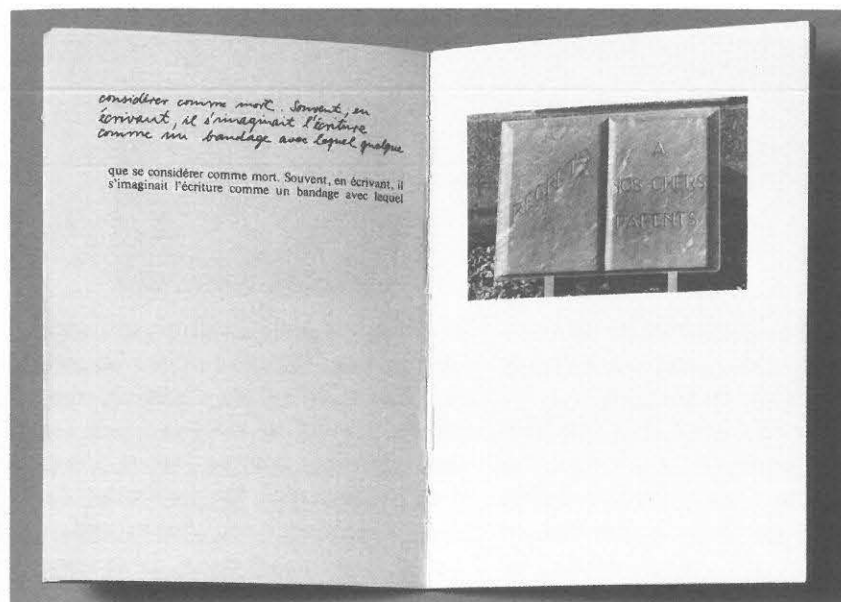 considérer comme mort. Souvent, en
écrivant, il s'imaginait l'écriture
comme un bandage avec lequel quelque
que se considérer comme mort. Souvent, en écrivant, il
s'imaginait l'écriture comme un bandage avec lequel
REGRETS
A
NOS CHERS
PARENTS